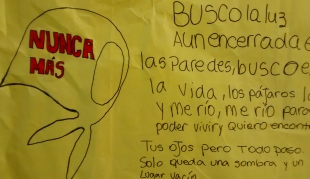 NUNCA
MÁS
BUSCO la luz
Aun encerrada e
las Paredes, busco e
la vida, los pájaros l
y me río, me río para
poder vivir y quiero encont
Tus ojos pero Todo paso.
Solo queda una sombra y un
Lugar vacío